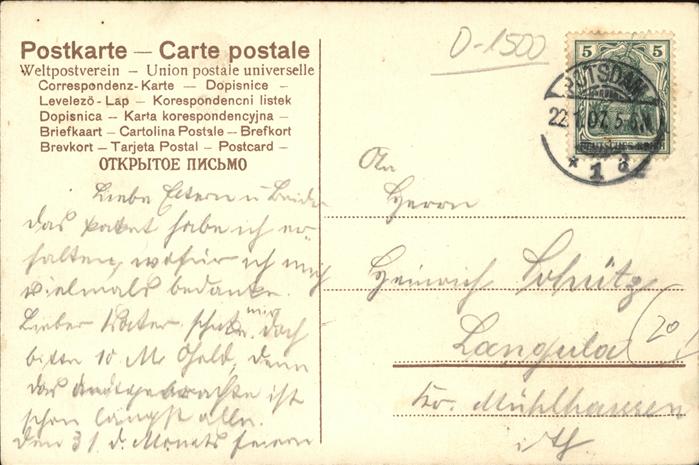 Postkarte — Carte postale
Weltpostverein — Union postale universelle
Correspondenz-Karte — Dopisnice —
Levelező-Lap — Korespondencni listek
Dopisnica — Karta korespondencyjna —
Briefkaart — Cartolina Postale — Brefkort
Brevkort — Tarjeta Postal — Postcard —
ОТКРЫТОЕ ПИСЬМО
D-1500
5 5
POTSDAM
22.1.07. 5-6 N
DEUTSCHES REICH
* 1 d
Liebe Eltern u
das paket habe ich er-
halten, wofür ich mich
vielmals bedanke.
Lieber Vater, schicke mir doch
bitte 10 M. Geld, denn
das mitgebrachte ist
schon längst alle.
Den 31 d. Monats feiern
An
Herrn
Heinrich Schütz
Langula
(20)
Kr. Mühlhausen
i Th.